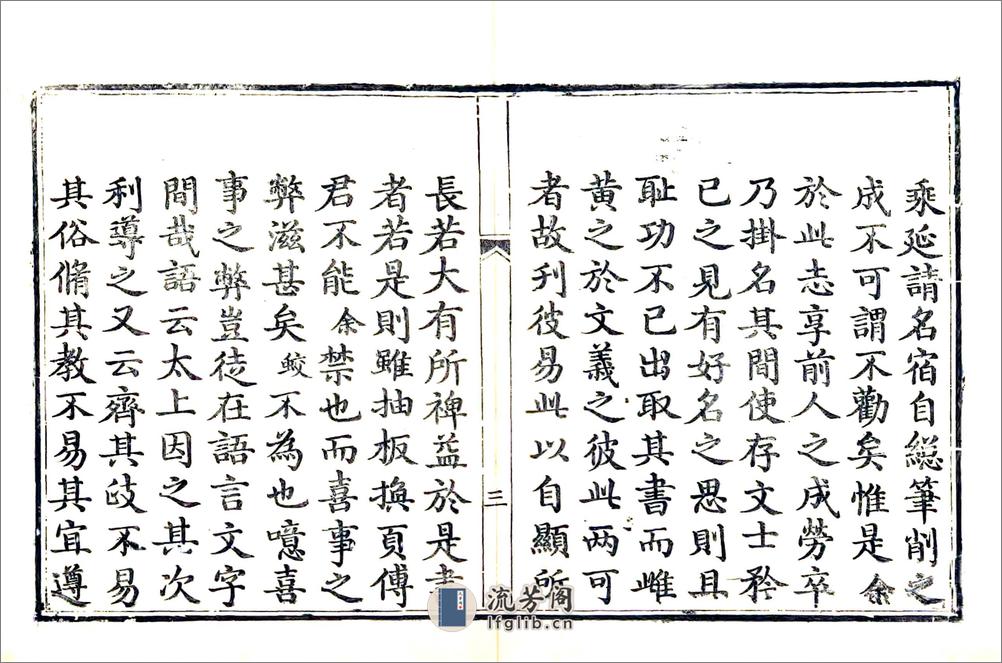 乘延請名宿自總筆削之
成不可謂不勸矣惟是余
於此志享前人之成勞卒
乃掛名其間使存文士矜
已之見有好名之思則且
耻功不已出取其書而雌
黃之於文義之彼此兩可
者故刋彼易此以自顯所
三
長若大有所裨益於是書
者若是則雖抽板換頁傅
君不能余禁也而喜事之
弊滋甚矣鮫不為也噫喜
事之弊豈徒在語言文字
間哉語云太上因之其次
利導之又云齊其政不易
其俗脩其教不易其宜遵
流芳阁
lfglib.cn